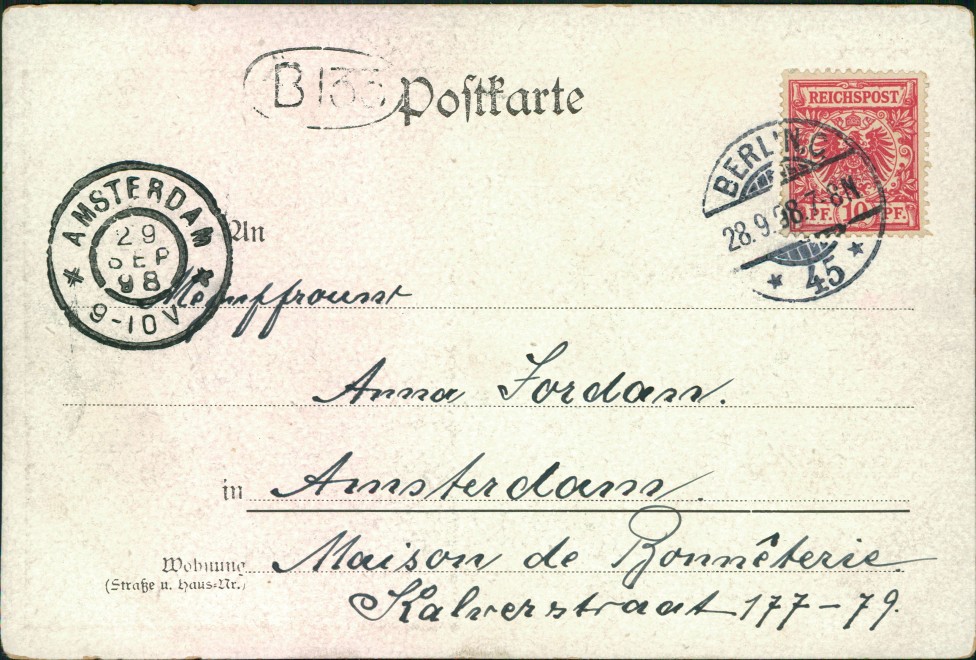 B 133
Postkarte
REICHSPOST
PF. 10 PF.
BERLIN.C
28.9.98.7-8N
* 45 *
* AMSTERDAM *
29
SEP
98
9-10V
An
Anna Jordan.
in Amsterdam.
Wohnung Maison de Bonnêterie.
(Straße u. Haus-Nr.)
Kalverstraat 177-79.